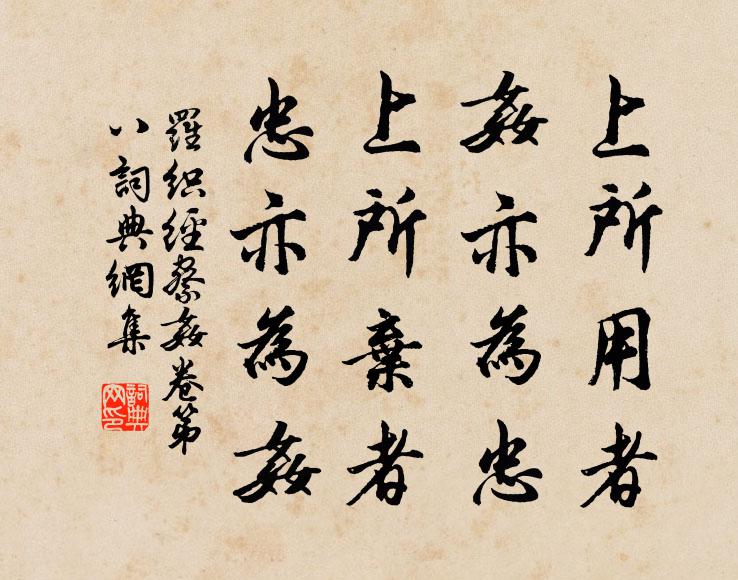 上所用者
姦亦為忠
上所棄者
忠亦為姦
羅織經察姦卷第
八詞典網集
詞典网印